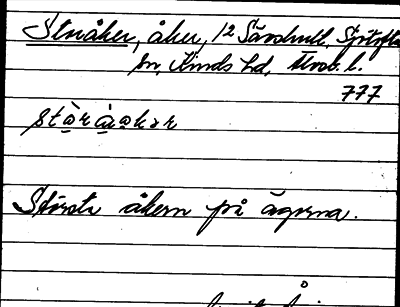 Storåker, åker, 12 Särshult, Sjötofta
sn, Kinds hd, Älvsb. l.
777
stòråk​ər
Största åkern på ägorna.